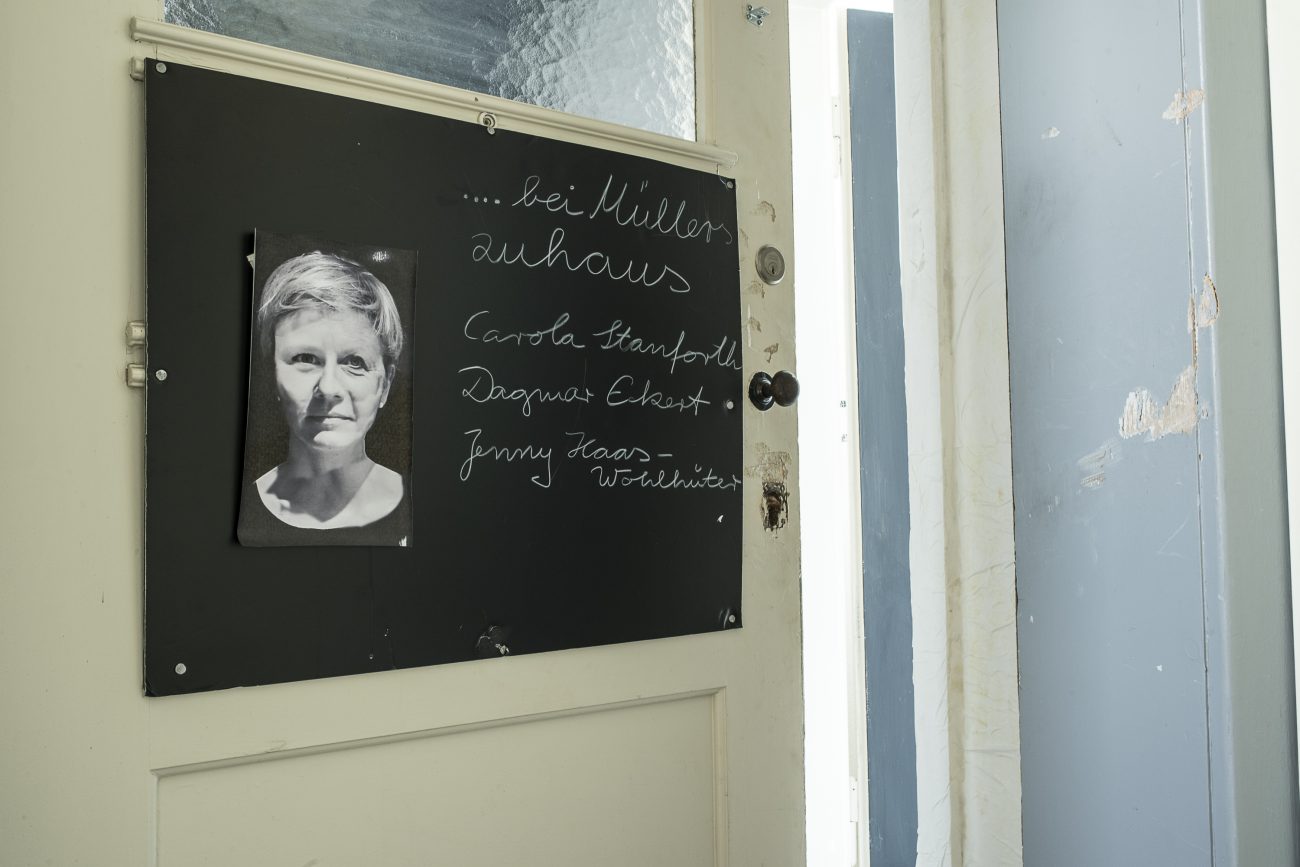 .... bei Müllers
zuhaus
Carola Stanforth
Dagmar Eckert
Jenny Haas-
Wohlhüter